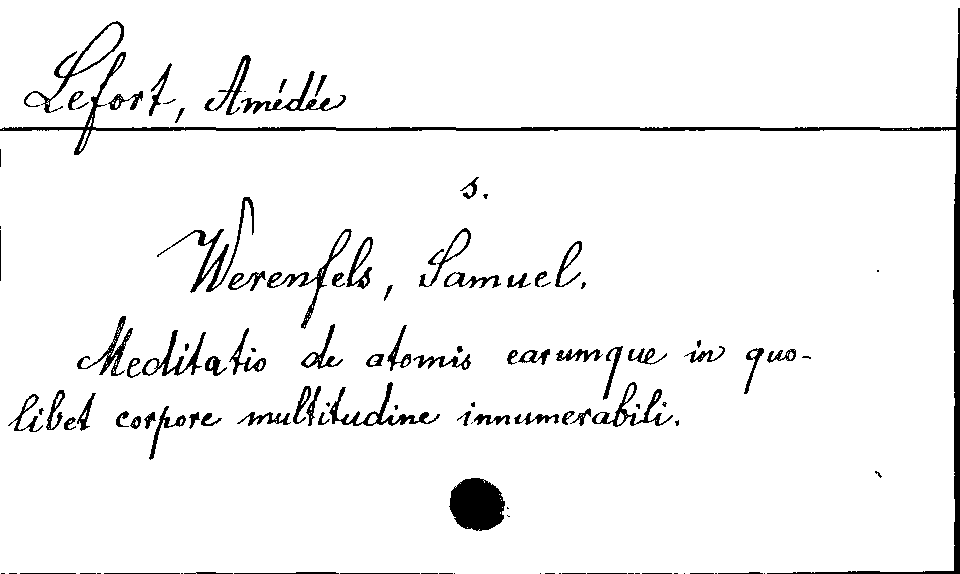 Lefort, Amédée
s.
Werenfels, Samuel.
Meditatio de atomis earumque in quo-
libet corpore multitudine innumerabili.